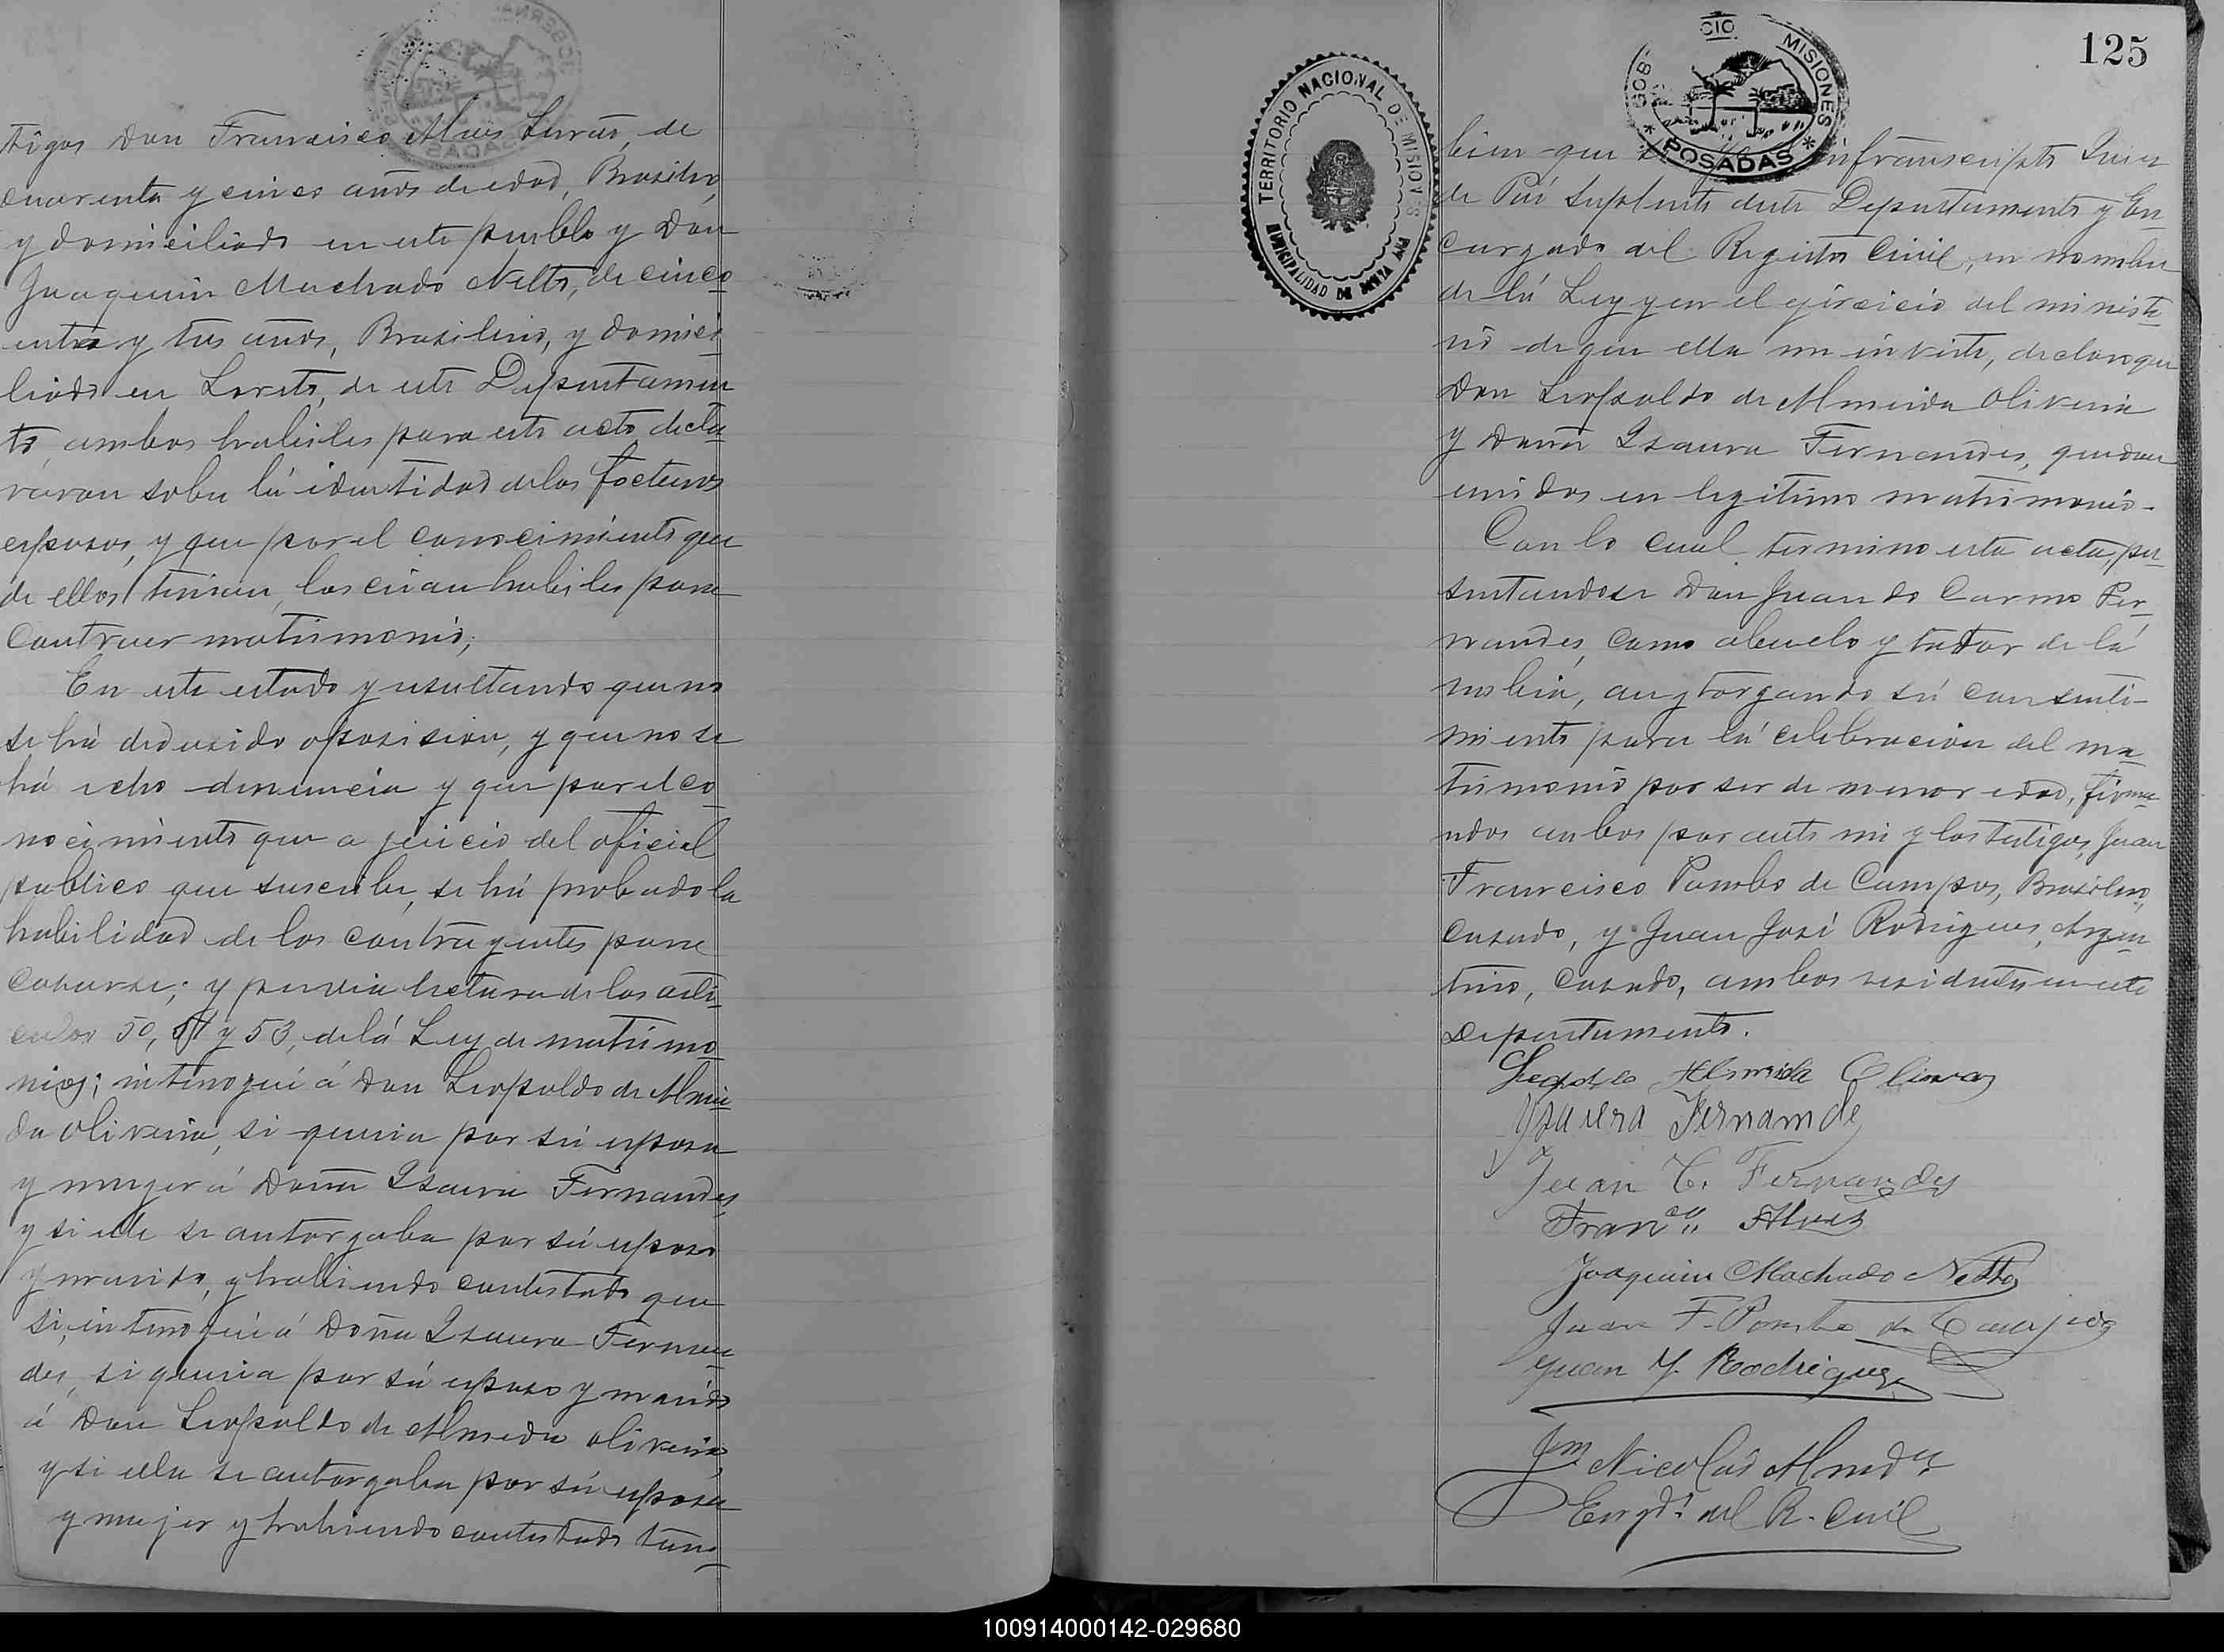 tigos Don Francisco Alves de
cuarenta y cinco años de edad, Brasilero,
y domiciliado en este pueblo y Don
Joaquin Machado Netto, de cinco
enta y tres años, Brasilero, y domici
liado en Loreto, de este Departamen
to, ambos habiles para este acto decla
raron sobre lá identidad delos foturos
esposos, y que por el conocimiento que
de ellos tenian, los creian habiles para
contraer matrimonio;
En este estado y resultando que no
se há deducido oposision, y que no se
há echo denuncia y que por el co
nocimiento que a juicio del oficial
publico que suscribe, se há probado la
habilidad de los contrayentes para
casarse; y previa lectura de los arti
culos 50, 51 y 53, de lá Ley de matrimo
nios; interrogué á Don Leopoldo de Almei
da Oliveira, si queria por sú esposa
y muger á Doña Isaura Fernandes,
y si ele se autorgaba por sú esposo
y marido, y habiendo contestado que
si, interrogué á Doña Isaura Fernan
des, si queria por sú esposo y marido
á Don Leopoldo de Almeda Oliveira,
y si ella se autorgaba por sú esposa
y mujer y habiendo contestado tam
125
TERRITORIO NACIONAL DE MISIONES
MUNICIPALIDAD DE SANTA ANA
MISIONES
* POSADAS *
bien que infranscripto Jues
de Pás Suplente deste Departamento y En
cargado del Registro Civil, en nombre
de lá Ley y en el ejercicio del ministe
rio de que ella me inviste, declaro que
Don Leopoldo de Almeida Oliveira
y Doña Isaura Fernandes, quedan
unidos en legitimo matrimonio.
Con lo cual termino esta acta, pre
sentandose Don Juan do Carmo Fer
nandes, como abuelo y tutor de lá
nobia, autorgando sú consenti-
miento para lá celebracion del ma
trimonio por ser de menor edad, firma
ndos ambos por ante mi y los testigos, Juan
Francisco Pombo de Campos, Brasilero,
casado, y Juan José Rodrigues, Argen
tino, casado, ambos residentes en este
Departamento.
Leopoldo Almeida Olivera
Ysaura Fernande
Juan C. Fernandes
Franco Alves
Joaquin Machado Netto
Juan F. Pombo de Campos
Juan J. Rodriguez
Nicolás
Encgdo. del R. Civil
100914000142-029680